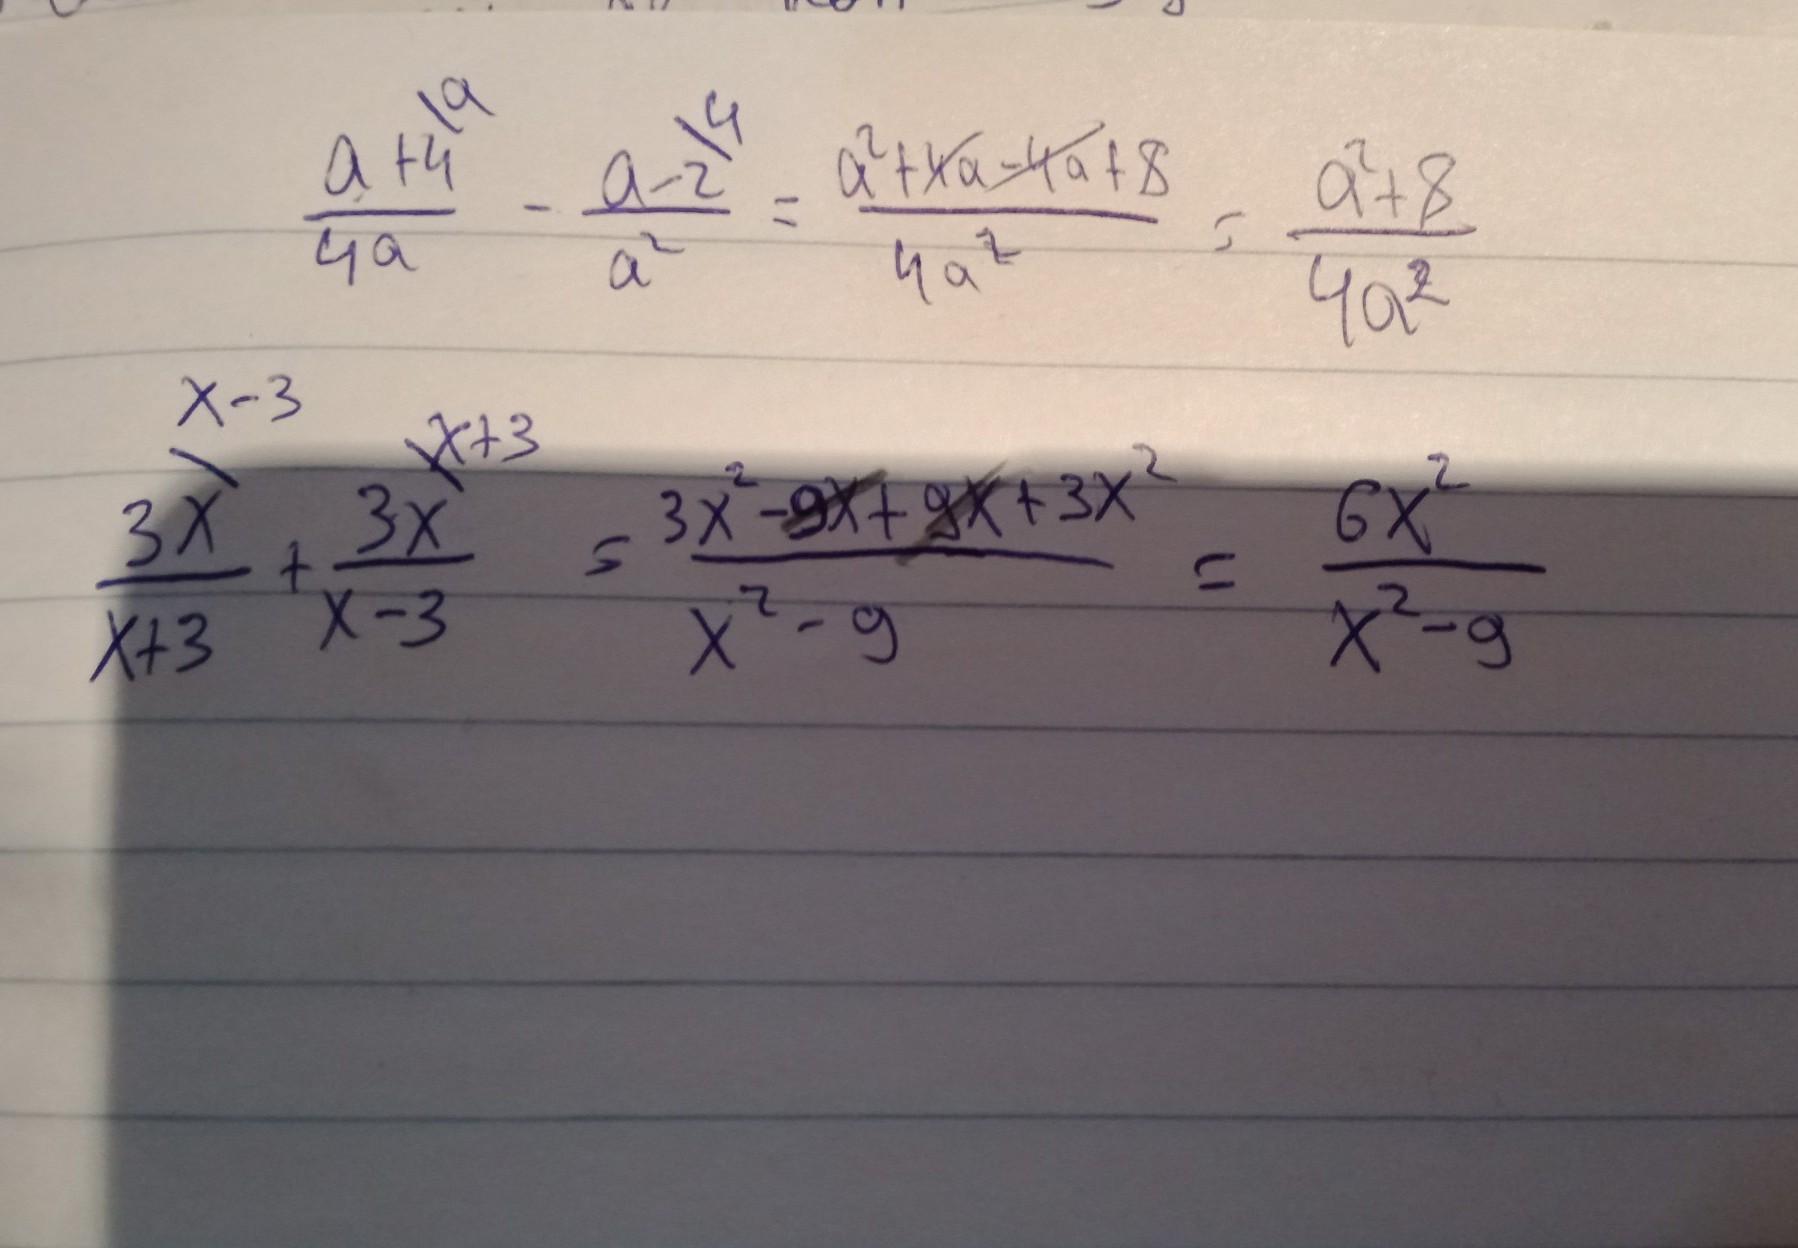 (a+4)/(4a) \a - (a-2)/(a²) \4 = (a²+4a-4a+8)/(4a²) = (a²+8)/(4a²)
(3x)/(x+3) \x-3 + (3x)/(x-3) \x+3 = (3x²-9x+9x+3x²)/(x²-9) = (6x²)/(x²-9)